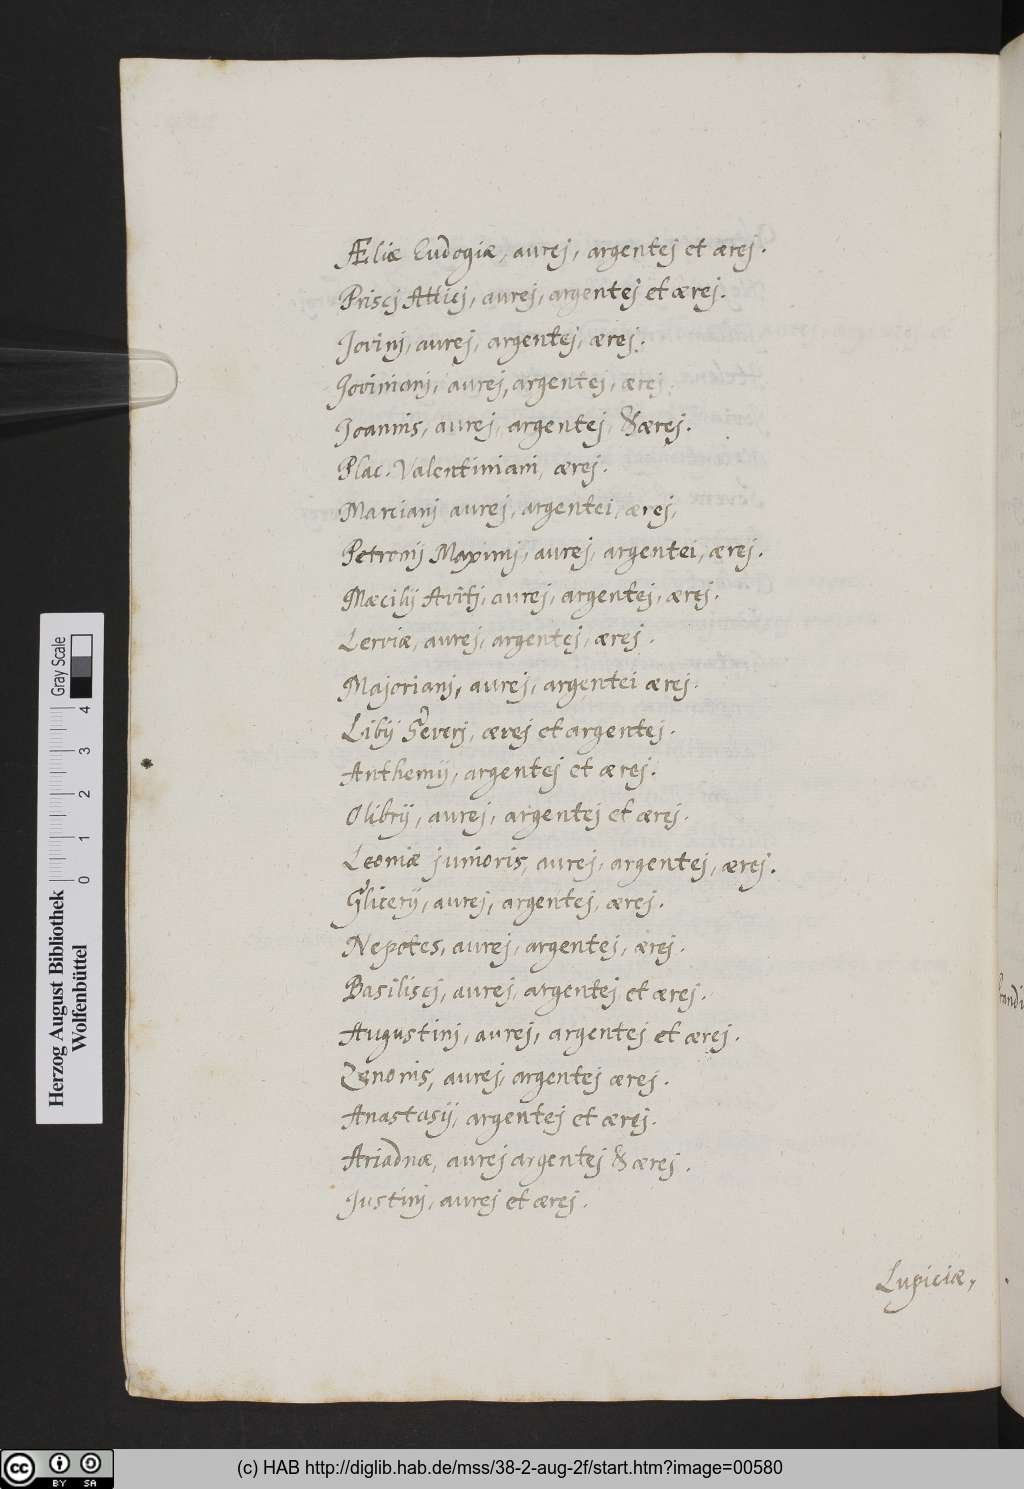 Æliæ Eudogiæ, aurej, argentej et ærej.
Priscj Atticj, aurej, argentej et ærej.
Jovinj, aurej, argentej, ærej.
Jovinianj, aurej, argentej, ærej.
Joannis, aurej, argentej, & ærej.
Plac. Valentiniani, ærej.
Marcianj aurej, argentei, ærej,
Petronij Maximj, aurej, argentei, ærej.
Mæcilij Avitj, aurej, argentej, ærej.
Lerviæ, aurej, argentej, ærej.
Majorianj, aurej, argentei ærej.
Libij Severj, ærej et argentej.
Anthemij, argentej et ærej.
Olibrij, aurej, argentej et ærej.
Leoniæ junioris, aurej, argentej, ærej.
Glicerij, aurej, argentej, ærej.
Nepotes, aurej, argentej, ærej.
Basiliscj, aurej, argentej et ærej.
Augustinj, aurej, argentej et ærej.
Zenonis, aurej, argentej ærej.
Anastasij, argentej et ærej.
Ariadnæ, aurej argentej & ærej.
Justinj, aurej et ærej.
Lupiciæ,
Herzog August Bibliothek
Wolfenbüttel
Gray Scale
0 1 2 3 4
cc BY SA
(c) HAB http://diglib.hab.de/mss/38-2-aug-2f/start.htm?image=00580